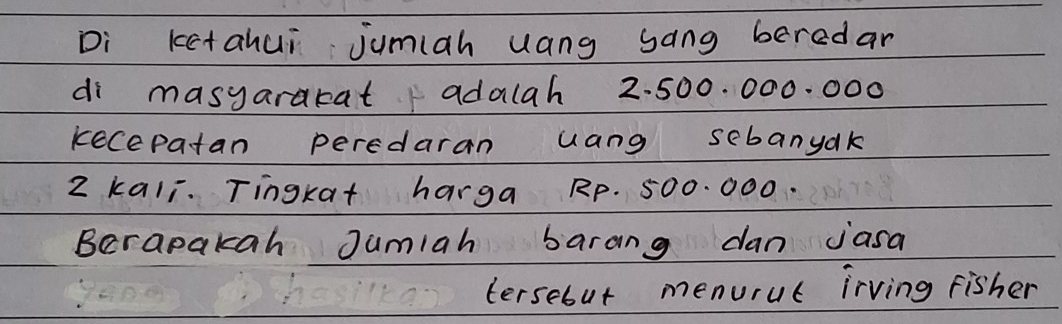 Di ketahui jumlah uang yang beredar
di masyarakat adalah 2.500.000.000
kecepatan peredaran uang sebanyak
2 kali. Tingkat harga RP. 500.000.
Berapakah Jumlah barang dan jasa
yang di hasilkan tersebut menurut irving Fisher